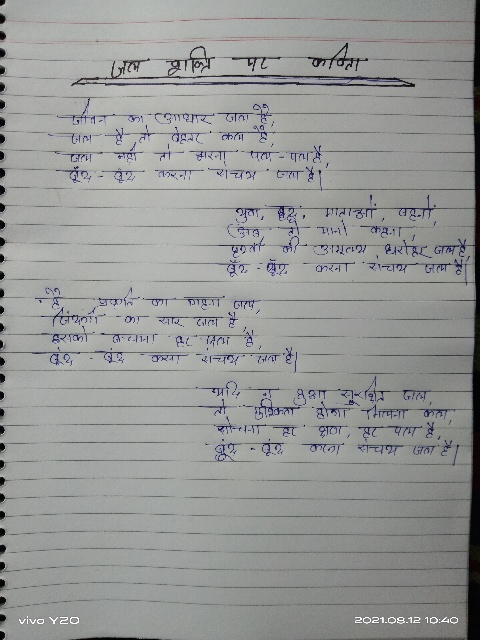 जल शक्ति पर कविता
जीवन का आधार जल है,
जल है तो बेहतर कल है,
जल नहीं तो मरना पल-पल है,
बूंद-बूंद करना संचय जल है।
युवा, वृद्ध, माताओं, बहनों,
अब तो मानो कहना,
पृथ्वी की अमूल्य धरोहर जल है,
बूँद-बूँद करना संचय जल है।
है प्रकृति का गहना जल,
जिंदगी का सार जल है,
इसको बचाना हर पल है,
बूंद-बूंद करना संचय जल है।
यदि न हुआ सुरक्षित जल,
तो मुश्किल होगा आपना कल,
सोचना हर क्षण, हर पल है,
बूंद-बूंद करना संचय जल है।
vivo Y20
2021.09.12 10:40